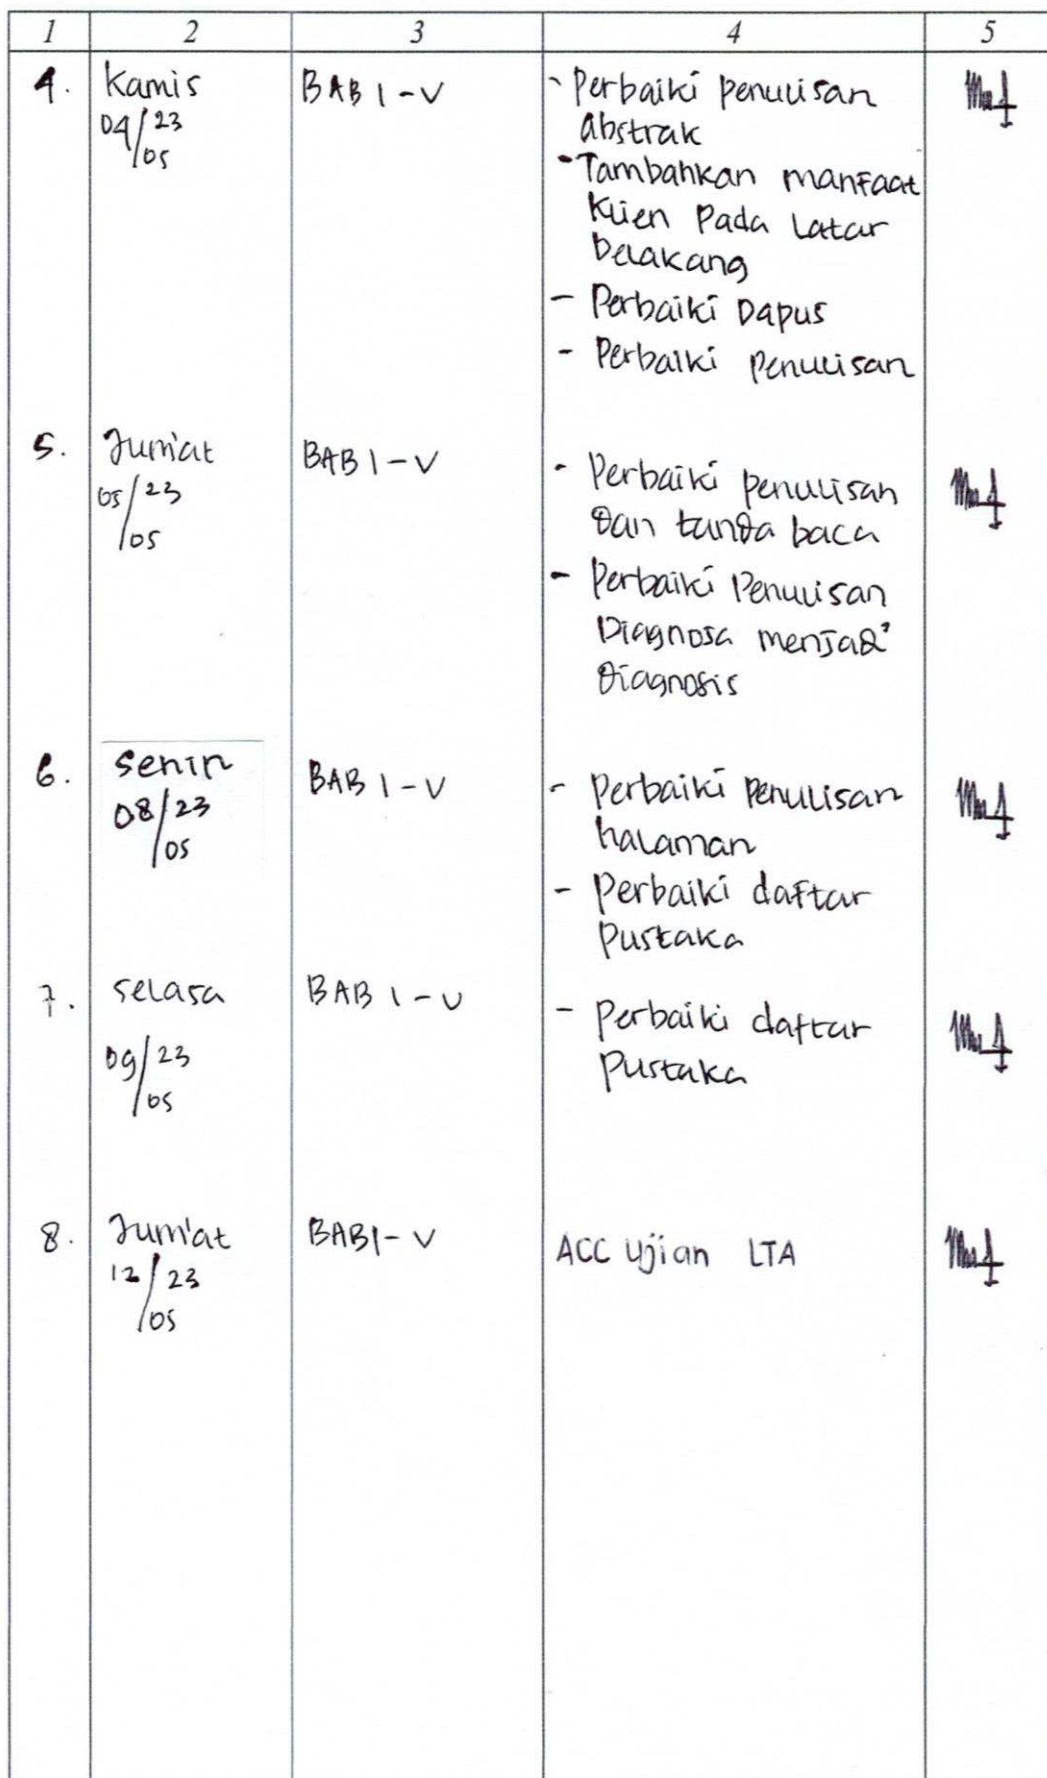 1 2 3 4 5
4. Kamis BAB I - V - Perbaiki penulisan
04/23 abstrak
/05 - Tambahkan manfaat
klien pada latar
belakang
- Perbaiki Dapus
- Perbaiki penulisan
5. Jum'at BAB I - V - Perbaiki penulisan
05/23 dan tanda baca
/05 - Perbaiki Penulisan
Diagnosa menjadi
diagnosis
6. Senin BAB I - V - Perbaiki Penulisan
08/23 halaman
/05 - Perbaiki daftar
Pustaka
7. Selasa BAB I - V - Perbaiki daftar
09/23 Pustaka
/05
8. Jum'at BAB I - V ACC Ujian LTA
12/23
/05